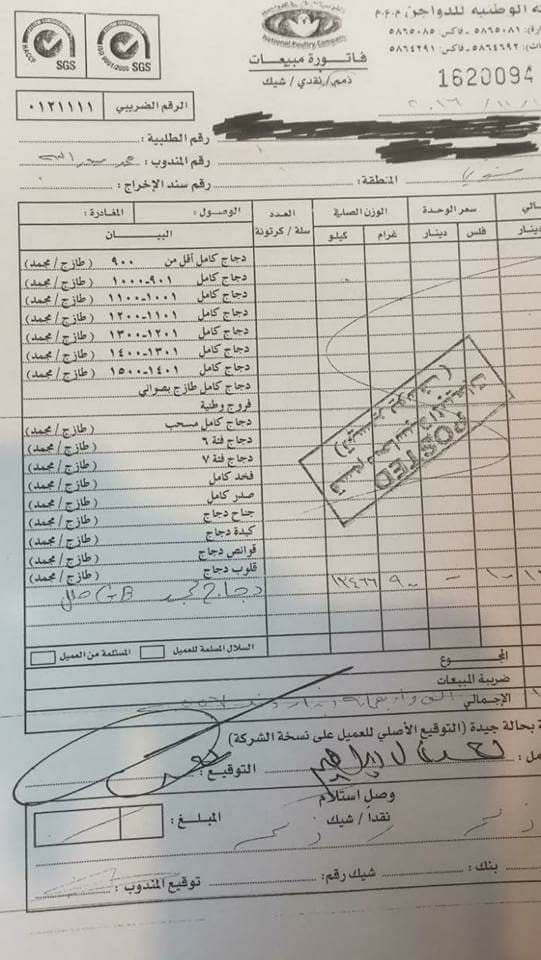 ـه الوطنيه للدواجن م.ع.م
٥٨٦٥٠٨١ - فاكس: ٥٨٦٥٠٨٥
٥٨٦٤٦٩٢ - فاكس: ٥٨٦٤٢٩١
National Poultry Company
HACCP SGS
ISO 9001:2000 SGS
فاتورة مبيعات
ذمم / نقدي / شيك
1620094
الرقم الضريبي ٠١٢١١١١
٢٠١٦ / ١١ /
رقم الطلبية :
رقم المندوب :
المنطقة :
رقم سند الإخراج :
الوصول : المغادرة :
البيـــــان
العدد سلة / كرتونة
الوزن الصافي كيلو غرام
سعر الوحدة دينار فلس
دينار
دجاج كامل أقل من ٩٠٠ (طازج / مجمد)
دجاج كامل ٩٠١-١٠٠٠ (طازج / مجمد)
دجاج كامل ١٠٠١-١١٠٠ (طازج / مجمد)
دجاج كامل ١١٠١-١٢٠٠ (طازج / مجمد)
دجاج كامل ١٢٠١-١٣٠٠ (طازج / مجمد)
دجاج كامل ١٣٠١-١٤٠٠ (طازج / مجمد)
دجاج كامل ١٤٠١-١٥٠٠ (طازج / مجمد)
دجاج كامل طازج بصواني
فروج وطنية
دجاج كامل مسحب (طازج / مجمد)
دجاج فئة ٦ (طازج / مجمد)
دجاج فئة ٧ (طازج / مجمد)
فخذ كامل (طازج / مجمد)
صدر كامل (طازج / مجمد)
جناح دجاج (طازج / مجمد)
كبدة دجاج (طازج / مجمد)
قوانص دجاج (طازج / مجمد)
قلوب دجاج (طازج / مجمد)
دجاج مجمد GB
POSTED
السلال المسلمة للعميل المستلمة من العميل
المجمـــــوع
ضريبة المبيعات
الإجمالي
ـة بحالة جيدة (التوقيع الأصلي للعميل على نسخة الشركة)
التوقيع :
وصل استلام
نقدا / شيك
المبلغ :
بنك : شيك رقم : توقيع المندوب :